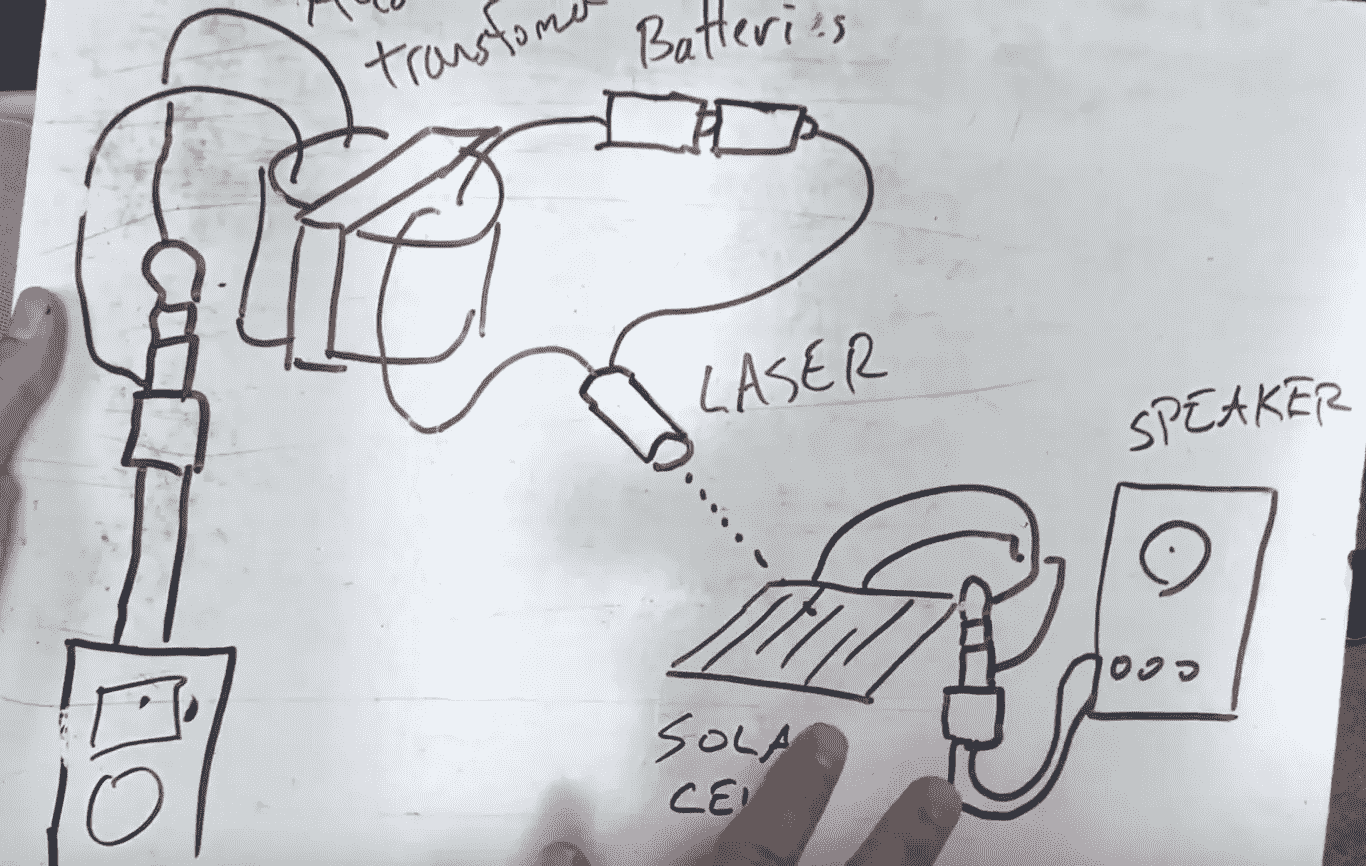 transfomer
Batteries
LASER
SPEAKER
SOLA
CE